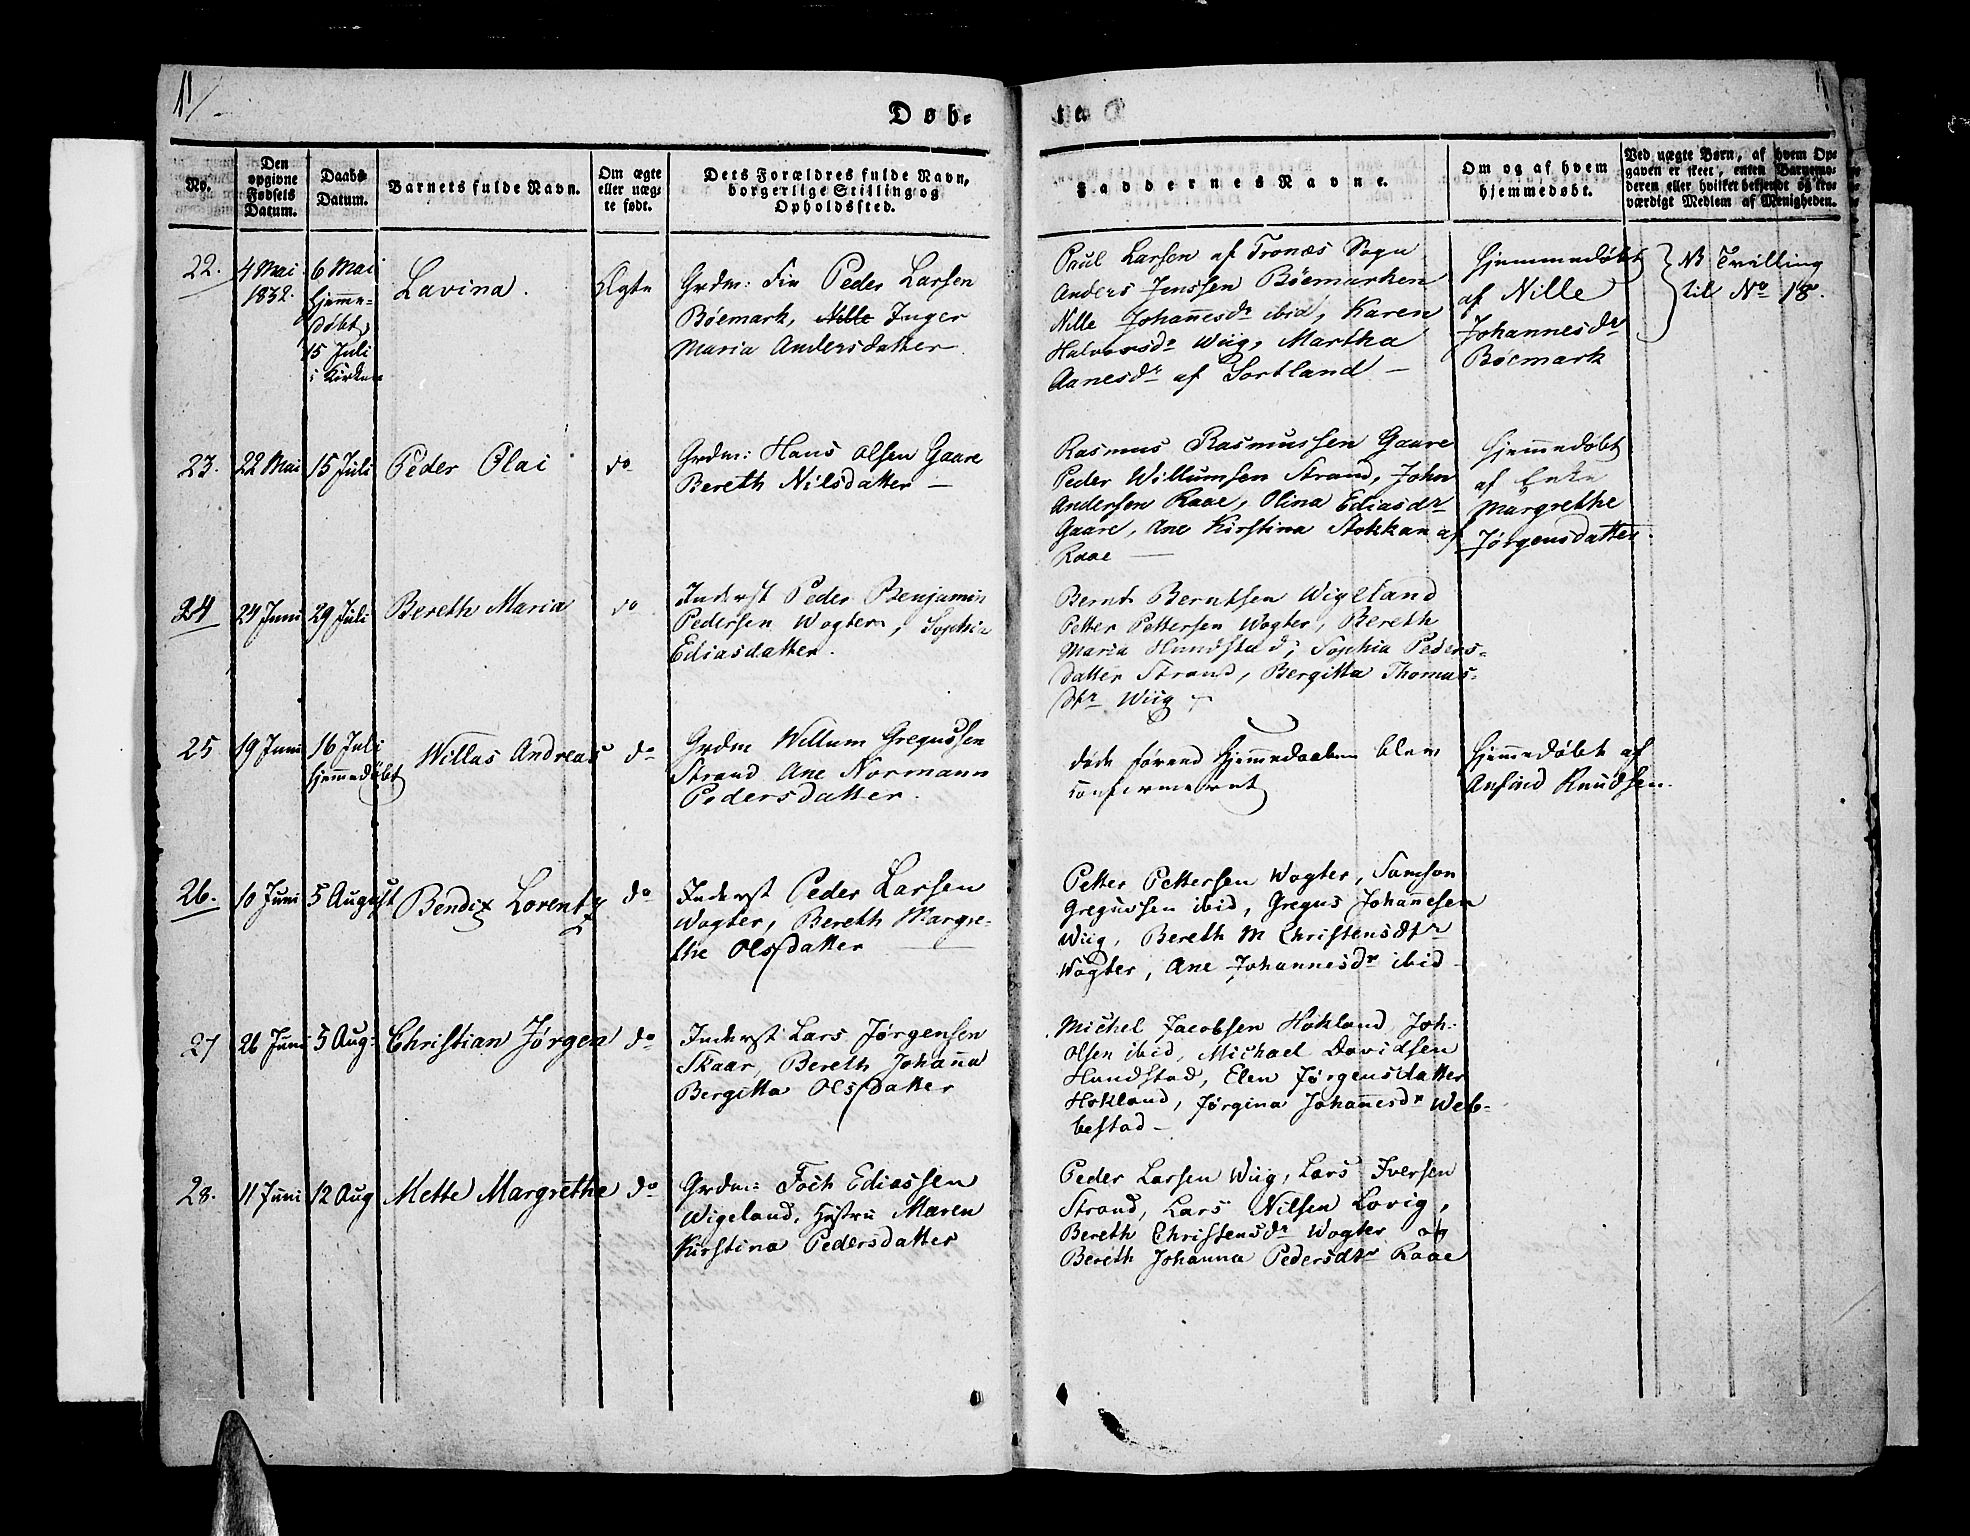 11/
Døb-
te
No.
Den opgivne Fødsels Datum.
Daabs Datum.
Barnets fulde Navn.
Om ægte eller uægte født.
Dets Forældres fulde Navn, borgerlige Stilling og Opholdssted.
Faddernes Navne.
Om og af hvem hjemmedøbt.
Ved uægte Børn, af hvem Opgaven er skeet, enten Barnemoderen eller hvilket bekjendt og troværdigt Medlem af Menigheden.
22.
4 Mai
1832.
6 Mai
hjemme-
døbt,
15 Juli
i Kirken
Lavina.
Ægte
Grdm: Fin Peder Larsen
Böemark, Nille Inger
Maria Andersdatter.
Paul Larsen af Tronæs Sogn
Anders Jenssen Böemarken
Nille Johanesdr ibid, Karen
Halvorsdr Wiig, Martha
Aanesdr af Sortland –
Hjemmedøbt
af Nille
Johannesdr
Böemark
NB Tvilling
til No 18.
23.
22 Mai
15 Juli
Peder Olai
do
Grdm: Hans Olsen Gaare
Bereth Nilsdatter –
Rasmus Rasmussen Gaare
Peder Willumsen Strand, John
Andersen Raae, Olina Ediasdr
Gaare, Ane Kirstina Stokkan af
Raae –
Hjemmedøbt
af Enke
Margrethe
Jørgensdatter.
24
24 Juni
29 Juli
Bereth Maria
do
Inderst Peder Benjamin
Pedersen Wogter, Sophia
Ediasdatter.
Bernt Berntsen Wigeland
Petter Pettersen Wogter, Bereth
Maria Hundstad, Sophia Peders-
datter Strand, Bergitta Thomas-
dtr Wiig
25
19 Juni
16 Juli
hjemmedøbt
Willas Andreas
do
Grdm Willum Gregussen
Strand Ane Normann
Pedersdatter.
døde førend Hjemmedaaben blev
confirmeret
Hjemmedøbt af
Anfind Knudsen.
26.
10 Juni
5 August
Bendix Lorentz
do
Inderst Peder Larsen
Wogter, Bereth Margre-
the Olsdatter
Petter Pettersen Wogter, Samson
Gregussen ibid, Gregus Johanesen
Wiig, Bereth M Christensdtr
Wogter, Ane Johannesdr ibid –
27
26 Juni
5 Aug:
Christian Jørgen
do
Inderst Lars Jørgensen
Skaar, Bereth Johana
Bergitta Olsdatter
Michel Jacobsen Hokland, Joh:
Olsen ibid, Michael Davidsen
Hundstad, Elen Jørgensdatter
Hokland, Jørgina Johanesdr Web-
bestad –
28.
11 Juni
12 Aug
Mette Margrethe
do
Grdm: Foch Ediassen
Wigeland, Hustru Maren
Kirstina Pedersdatter
Peder Larsen Wiig, Lars Iversen
Strand, Lars Nilsen Lovig,
Bereth Christensdr Wogter og
Bereth Johanna Pedersdtr Raae